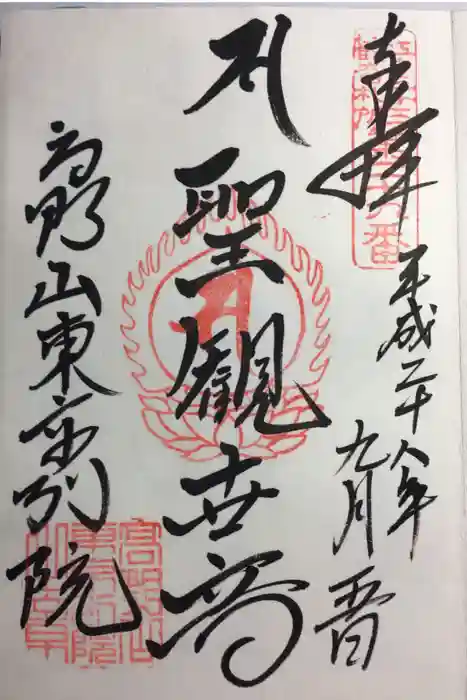 奉拝
平成二十八年
九月五日
聖観世音
高野山東京別院